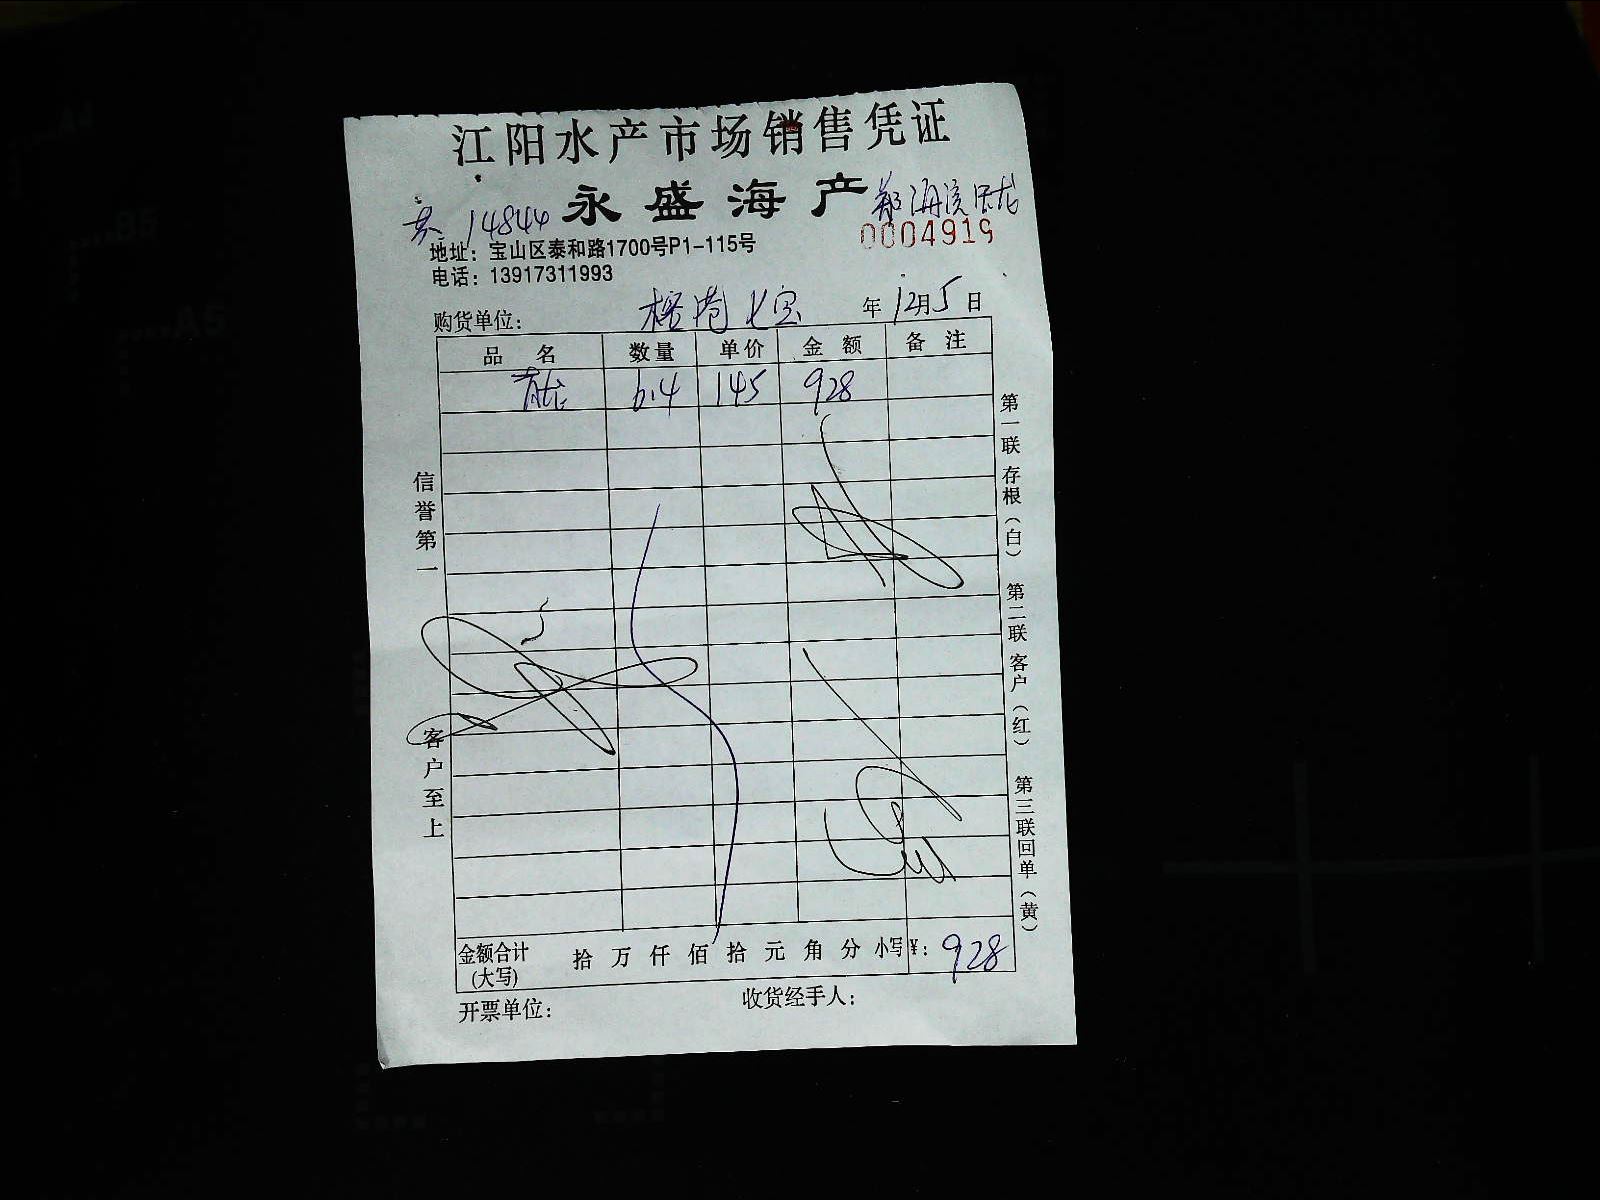 江阳水产市场销售凭证
永盛海产
14844
0004919
地址：宝山区泰和路1700号P1-115号
电话：13917311993
购货单位： 榕港七宝 年12月5日
品名 数量 单价 金额 备注
青龙 6.4 145 928
信誉第一
客户至上
第一联存根（白）
第二联客户（红）
第三联回单（黄）
金额合计 拾 万 仟 佰 拾 元 角 分 小写¥：928
（大写）
开票单位： 收货经手人：